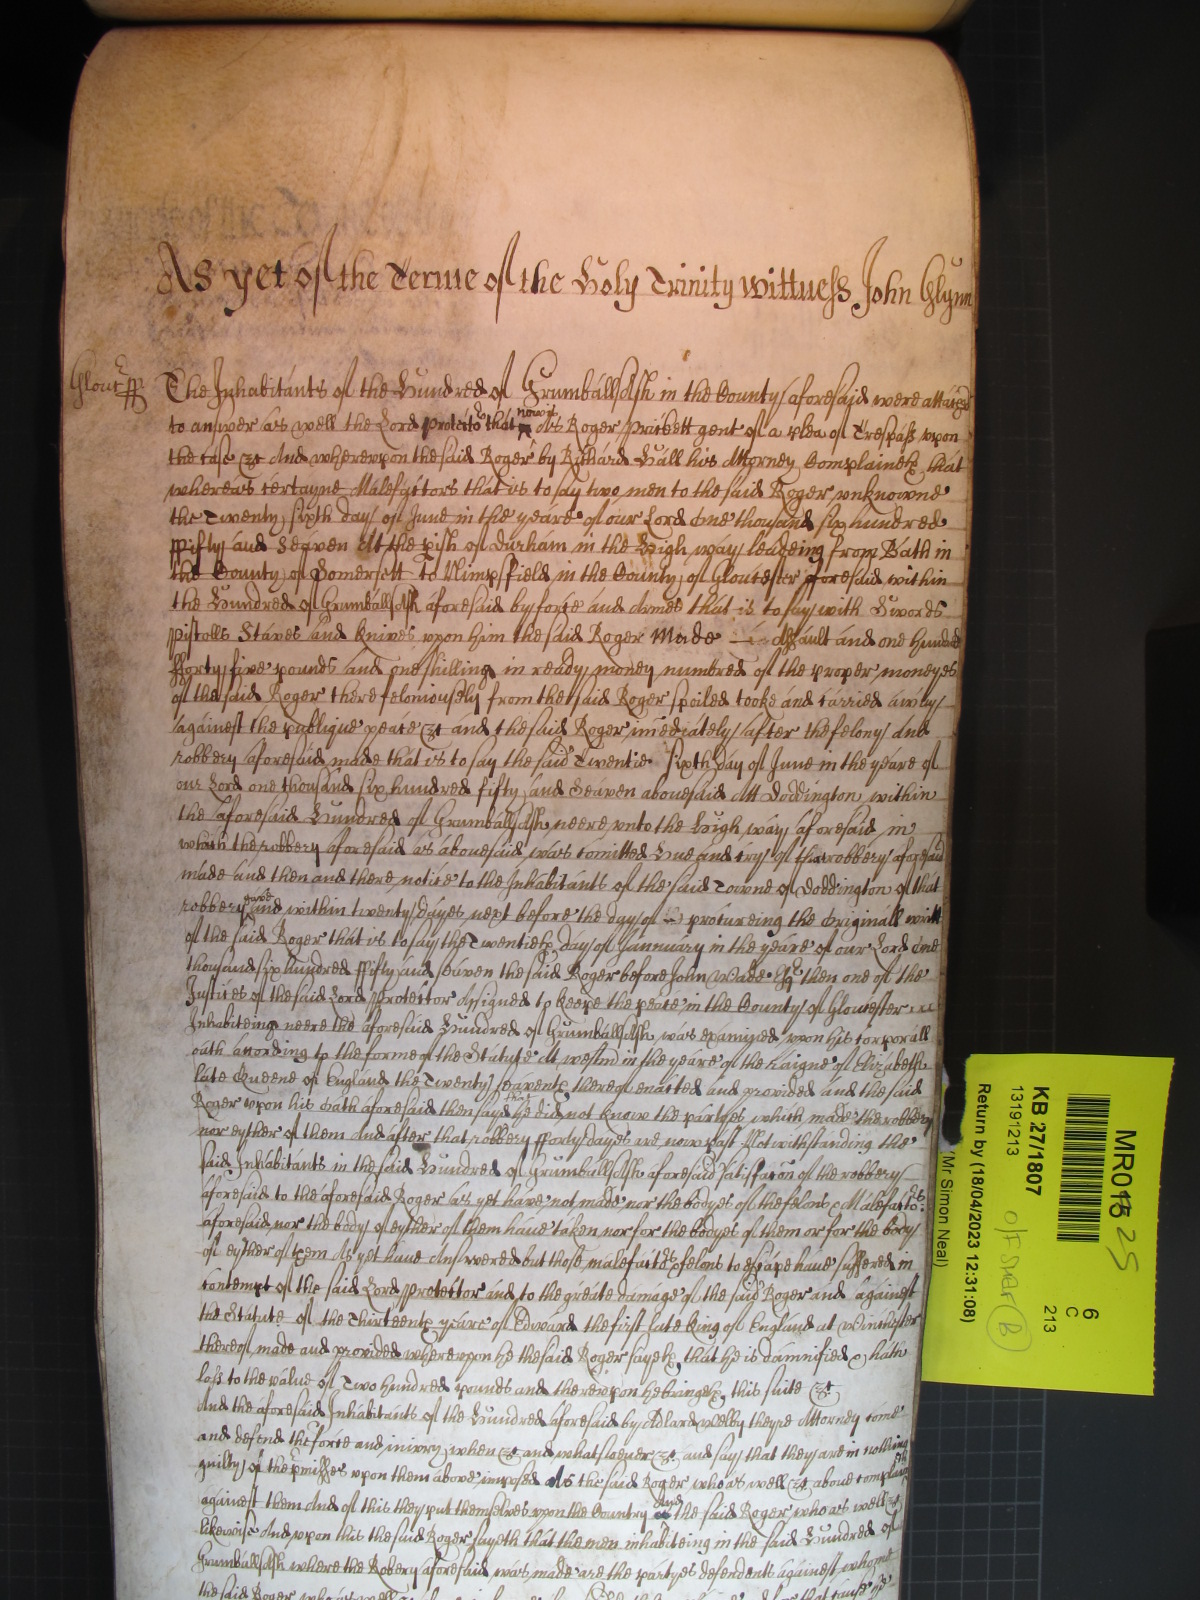 As yet of the Terme of the Holy Trinity Wittness John Glynn
Glouc ss
The Inhabitants of the Hundred of Grumballs Ash in the County aforesaid were attached
to answer as well the Lord Protector that now is as Roger Prickett gent of a plea of Trespass upon
the case &c And whereupon the said Roger by Richard Hall his Attorney Complaineth that
whereas certayne Malefactors that is to say two men to the said Roger unknowne
the Twenty sixth day of June in the yeare of our Lord One thousand six hundred
ffifty and Seaven Att the pish of Durham in the High way leadeing from Bath in
the County of Somersett to Nimpsfield in the County of Gloucester aforesaid within
the Hundred of Grumballs Ash aforesaid by force and armes that is to say with Swords
Pistolls Staves and knives upon him the said Roger Made an Assault and one hundred
fforty five pounds and one shilling in ready money numbred of the proper moneyes
of the said Roger there feloniously from the said Roger spoiled tooke and carried away
against the publique peace &c and the said Roger imediately after the felony and
robbery aforesaid made that is to say the said Twentie Sixth day of June in the yeare of
our Lord one thousand six hundred fifty and Seaven abovesaid Att Doddington within
the aforesaid Hundred of Grumballs Ash neere unto the High way aforesaid in
which the robbery aforesaid as abovesaid was comitted Hue and cry of the robbery aforesaid
made and then and there notice to the Inhabitants of the said Towne of Doddington of that
robbery gave and within twenty dayes next before the day of procureing the Originall writt
of the said Roger that is to say the Twentieth day of Jannuary in the yeare of our Lord One
thousand six hundred ffifty and seaven the said Roger before John Wade Esq then one of the
Justices of the said Lord Protector Assigned to keepe the peace in the County of Gloucester
Inhabiteing neere the aforesaid Hundred of Grumballs Ash was examined upon his corporall
oath according to the forme of the Statute At westm in the yeare of the Raigne of Elizabeth
late Queene of England the Twenty seaventh thereof enacted and provided and the said
Roger upon his Oath aforesaid then sayd that he did not know the partyes which made the robbery
nor eyther of them And after that robbery fforty dayes are now past Notwithstanding the
said Inhabitants in the said Hundred of Grumballs Ash aforesaid Satisfaccon of the robbery
aforesaid to the aforesaid Roger as yet have not made nor the bodyes of the felons & Malefactors
aforesaid nor the body of eyther of them have taken nor for the bodyes of them or for the body
of eyther of them As yet have Answered but those malefactors & felons to escape have suffered in
contempt of the said Lord Protector and to the greate damage of the said Roger and against
the Statute of the Thirteenth yeare of Edward the first late King of England at Winchester
thereof made and provided whereupon he the said Roger sayeth that he is damnified & hath
loss to the value of Two hundred pounds and thereupon he bringeth this suite &c
And the aforesaid Inhabitants of the Hundred aforesaid by Adlard Welby theyre Attorney come
and defend the force and iniury when &c and whatsoever &c and say that they are in nothing
guilty of the pmisses upon them above imposed As the said Roger who as well &c above complaineth
against them And of this they put themselves upon the Country And the said Roger who as well &c
likewise And upon this the said Roger sayeth that the men inhabiteing in the said Hundred of
Grumballs Ash where the Robery aforesaid was made are the partyes defendents against whome
the said Roger who as well
MR018 25
6
C
213
KB 27/1807
13191213
Return by (18/04/2023 12:31:08)
(Mr Simon Neal)